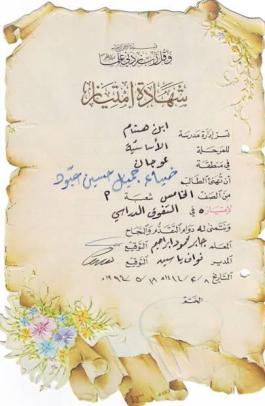 وقل رب زدني علما
شهادة امتياز
تسر إدارة مدرسة ابن هشام
للمرحلة الأساسية
في منطقة عوجان
أن تهنئ الطالب ضياء جميل حسين عبود
من الصف الخامس شعبة م
لامتيازه في التفوق الدراسي
ونتمنى له دوام التقدم والنجاح
المعلم جابر محمود ابراهيم التوقيع
المدير نواف ياسين التوقيع
التاريخ
الختم